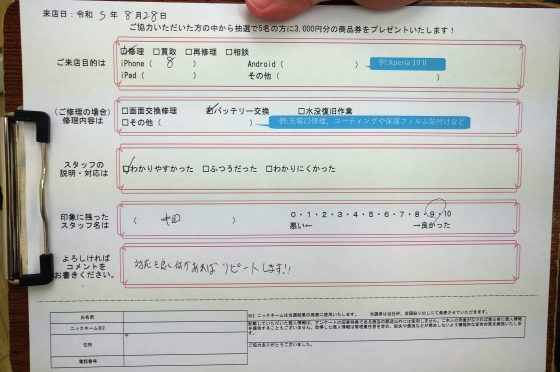 来店日：令和 5年 8月 28日
ご協力いただいた方の中から抽選で5名の方に3,000円分の商品券をプレゼントいたします！
ご来店目的は
☑修理 □買取 □再修理 □相談
iPhone（ 8 ） Android（ ） 例:Xperia 10 II
iPad（ ） その他（ ）
（ご修理の場合）
修理内容は
□画面交換修理 ☑バッテリー交換 □水没復旧作業
□その他（ ） 例:充電口修理、コーティングや保護フィルム貼付けなど
スタッフの
説明・対応は
☑わかりやすかった □ふつうだった □わかりにくかった
印象に残った
スタッフ名は
（ 中田 ）
0・1・2・3・4・5・6・7・8・9・10
悪い← →良かった
よろしければ
コメントを
お書きください。
対応も良く何かあれば リピートします!!
お名前
ニックネーム※2
住所
〒
電話番号
※2 ニックネームは当選結果の発表に使用いたします。 当選者は当社HP、当店貼り出しにて発表させていただきます。
ご協力ありがとうございました。